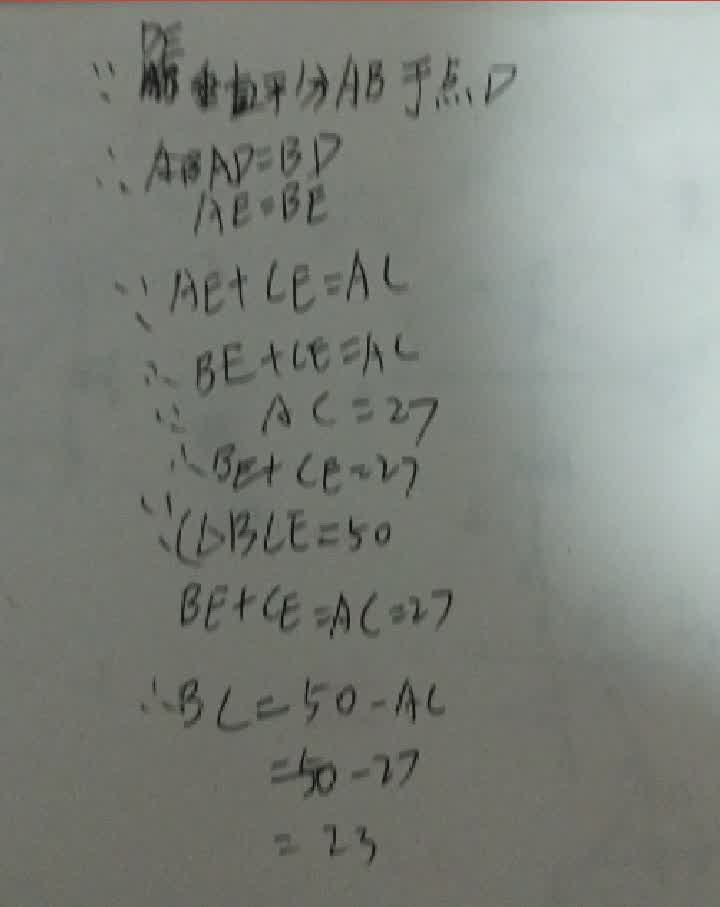 ∵ DE垂直平分AB于点D
∴ AD=BD
AE=BE
∵ AE+CE=AC
∴ BE+CE=AC
∵ AC=27
∴ BE+CE=27
∵ C△BCE=50
BE+CE=AC=27
∴ BC=50-AC
=50-27
=23